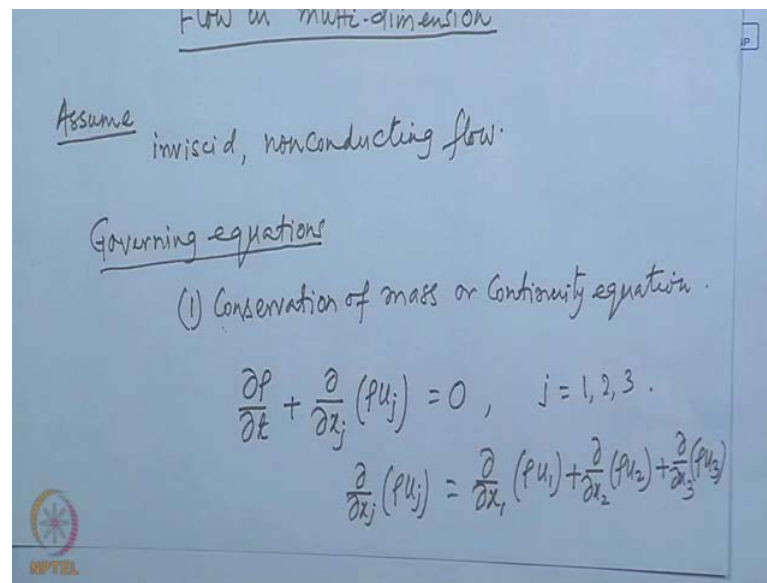 Flow in multi-dimension
Assume
inviscid, nonconducting flow.
Governing equations
(1) Conservation of mass or Continuity equation.
∂ρ/∂t + ∂/∂x_j (ρu_j) = 0, j = 1, 2, 3.
∂/∂x_j (ρu_j) = ∂/∂x_1 (ρu_1) + ∂/∂x_2 (ρu_2) + ∂/∂x_3 (ρu_3)
NPTEL